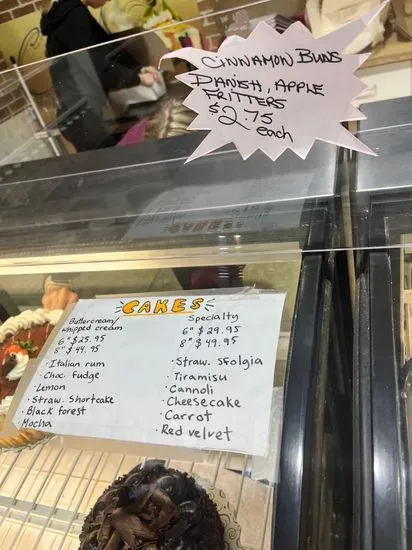 CINNAMON BUNS
DANISH, APPLE
FRITTERS
$2.75
each
CAKES
Buttercream/
whipped cream
6" $25.95
8" $44.95
· Italian rum
· Choc. fudge
· Lemon
· Straw. Shortcake
· Black forest
· Mocha
Specialty
6" $29.95
8" $49.95
· Straw. Sfolgia
· Tiramisu
· Cannoli
· Cheesecake
· Carrot
· Red velvet